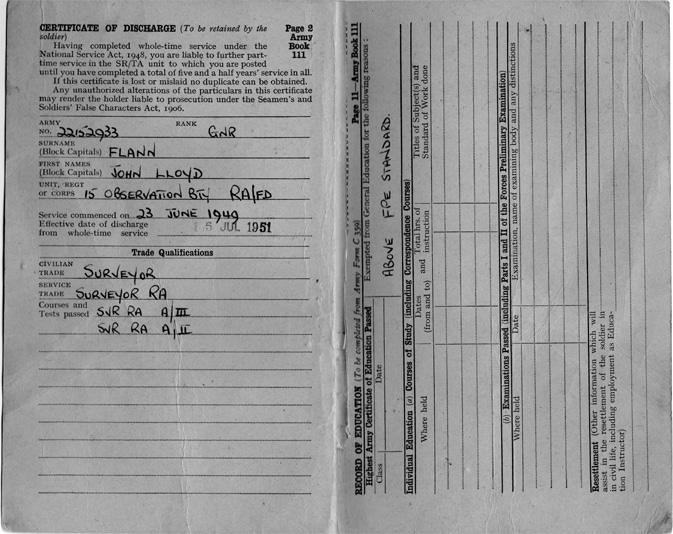 CERTIFICATE OF DISCHARGE (To be retained by the soldier)
Page 2
Army
Book
111
Having completed whole-time service under the
National Service Act, 1948, you are liable to further part-
time service in the SR/TA unit to which you are posted
until you have completed a total of five and a half years' service in all.
If this certificate is lost or mislaid no duplicate can be obtained.
Any unauthorized alterations of the particulars in this certificate
may render the holder liable to prosecution under the Seamen's and
Soldiers' False Characters Act, 1906.
ARMY NO. 22152933 RANK GNR
SURNAME
(Block Capitals) FLANN
FIRST NAMES
(Block Capitals) JOHN LLOYD
UNIT, REGT
or CORPS 15 OBSERVATION BTY RA/FD
Service commenced on 23 JUNE 1949
Effective date of discharge
from whole-time service 5 JUL 1951
Trade Qualifications
CIVILIAN
TRADE SURVEYOR
SERVICE
TRADE SURVEYOR RA
Courses and
Tests passed SVR RA A/III
SVR RA A/II
Page 11—Army Book 111
RECORD OF EDUCATION (To be completed from Army Form C 359)
Highest Army Certificate of Education Passed
Exempted from General Education for the following reasons:
Class
Date
ABOVE FPE STANDARD.
Individual Education (a) Courses of Study (including Correspondence Courses)
Where held
Dates
(from and to)
and
Total hrs. of
instruction
Titles of Subject(s) and
Standard of Work done
(b) Examinations Passed (including Parts I and II of the Forces Preliminary Examination)
Where held
Date
Examination, name of examining body and any distinctions
Resettlement (Other information which will
assist in the resettlement of the soldier in
in civil life, including employment as Educa-
tion Instructor)